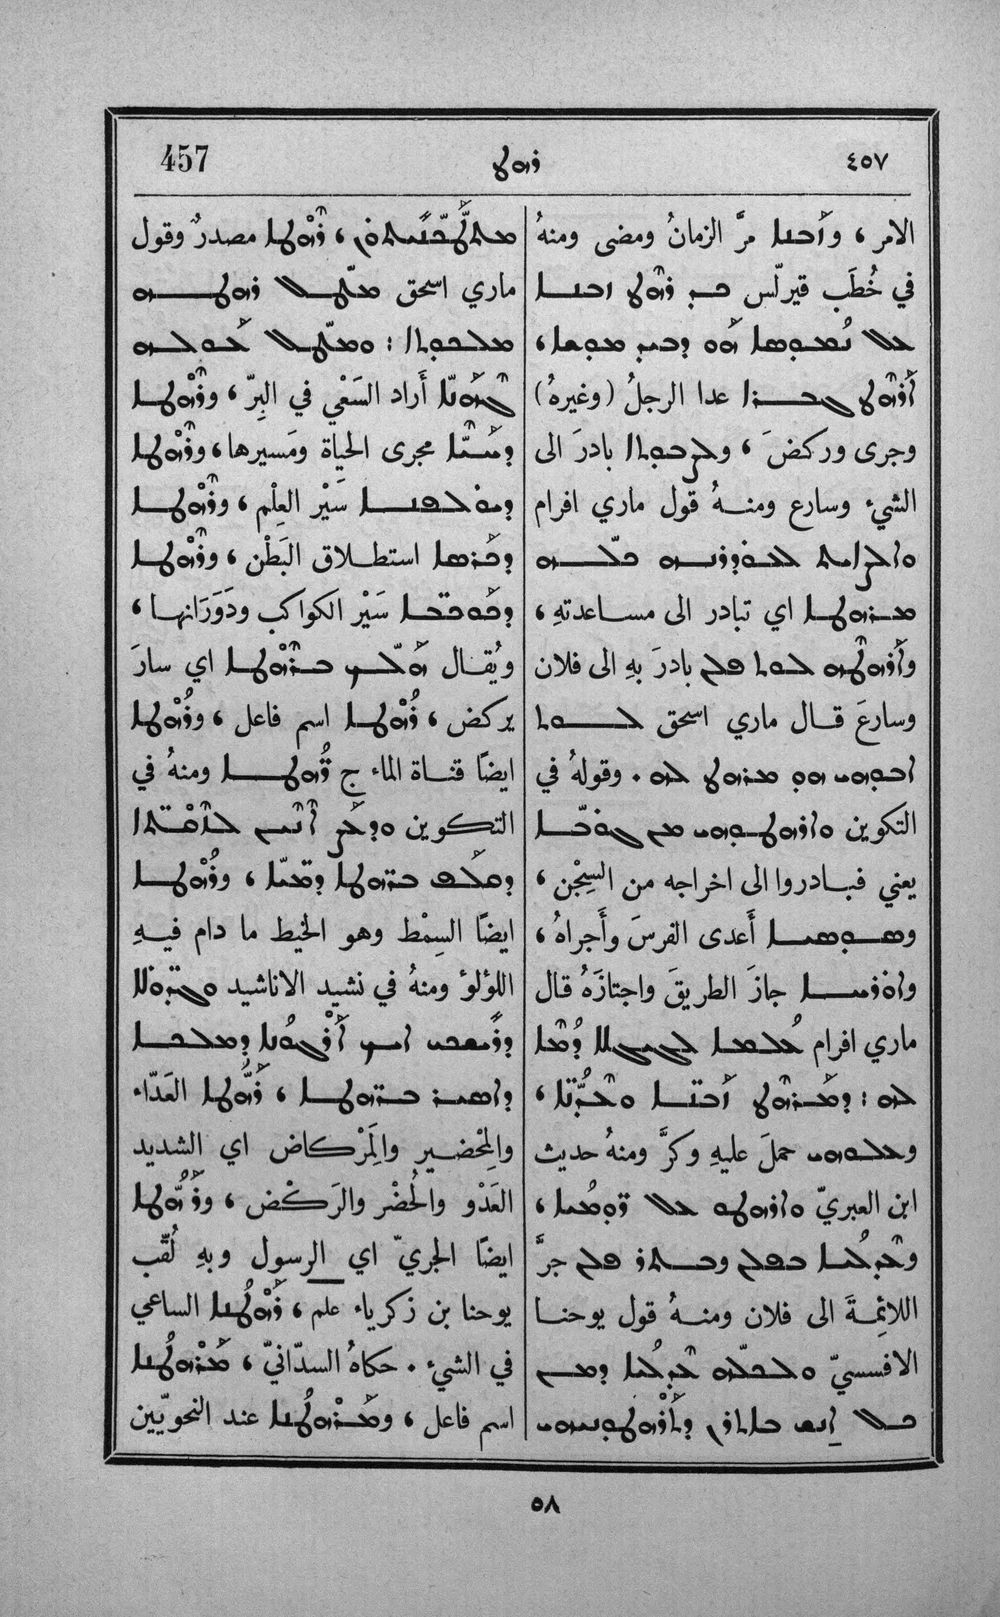 ٤٥٧ ܪܗܛ 457
الامر، وܙܒܢܐ مرَّ الزمانُ ومضى ومنهُ
في خُطَب قيرلّس ܟܕ ܪܗܛ ܙܒܢܐ
ܥܠ ܢܡܘܣܐ ܗܘ
ܪܗܛ ܓܒܪܐ عدا الرجلُ (وغيرهُ)
وجرى وركضَ، وܠܨܒܘܬܐ بادرَ الى
الشيء وسارع ومنهُ قول ماري افرام
ܟܠܗ
ܡܪܗܛܐ اي تبادر الى مساعدتهِ،
وܐܪܗܛܗ ܠܘܬ ܦܠܢ بادرَ بهِ الى فلان
وسارعَ قال ماري اسحق ܠܘܬ
ܐܒܘܗܝ ܗܘ ܡܪܗܛ ܠܗ. وقولهُ في
التكوين ܘܐܪܗܛܘܗܝ ܡܢ ܓܘܒܐ
يعني فبادروا الى اخراجه من السِجْن،
وܣܘܣܝܐ أَعدى الفرسَ وأَجراهُ،
وܐܘܪܚܐ جازَ الطريقَ واجتازَهُ قال
ماري افرام ܥܠܡܐ ܠܓܝܓܠܐ ܕܡܐ
ܠܗ: ܕܡܪܗܛ ܙܒܢܐ ܘܥܕܢܐ،
وܥܠܘܗܝ حملَ عليهِ وكرَّ ومنهُ حديث
ابن العبريّ ܘܐܪܗܛܘ ܥܠ ܪܘܡܝܐ،
وܥܕܠܝܐ ܒܦܠܢ وܒܬܪ ܦܠܢ جرَّ
اللائِمةَ الى فلان ومنهُ قول يوحنا
الافسسيّ ܥܕܠܝܐ ܕܡܢ
ܟܠ ܐܢܫ ܕܐܪܗܛܘܗܝ
ܪܗܛܐ مصدرٌ وقول
ماري اسحق ܡܛܠ ܪܗܛܗ
ܡܠܟܘܬܐ: ܘܡܛܠ
أَراد السَعْي في البِرّ، وܪܗܛܐ
ܕܚܝܐ مجرى الحياة ومَسيرها، وܪܗܛܐ
ܕܝܘܠܦܢܐ سَيْر العِلْم، وܪܗܛܐ
ܕܟܪܣܐ استطلاق البَطْن، وܪܗܛܐ
ܕܟܘܟܒܐ سَيْر الكواكب ودَوَرَانها،
ويُقال ܗܠܟ ܒܪܗܛܐ اي سارَ
يركض، ܪܗܛܐ اسم فاعل، وܪܗܛܐ
ايضًا قناة الماء ج ܪܗܛܐ ومنهُ في
التكوين
ܒܪܗܛܐ ܕܡܝܐ، وܪܗܛܐ
ايضًا السِمْط وهو الخيط ما دام فيهِ
اللؤلؤ ومنهُ في نشيد الاناشيد
ܐܝܟ ܐܪܓܘܢܐ ܕܡܠܟܐ
ܕܐܣܝܪ ܒܪܗܛܐ، ܪܗܛܐ العَدّاء
والمِحْضير والمَرْكاض اي الشديد
العَدْو والحُضْر والرَكْض، وܪܗܛܐ
ايضًا الجريّ اي الرسول وبهِ لُقّب
يوحنا بن زكرياء علم، ܪܗܛܢܐ الساعي
في الشيء. حكاهُ السدّانيّ، ܡܪܗܛܢܐ
اسم فاعل، وܡܪܗܛܢܐ عند النحويّين
٥٨